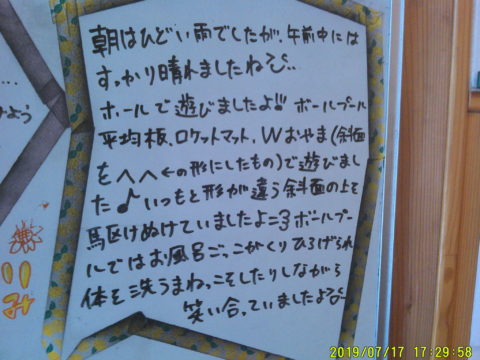 朝はひどい雨でしたが、午前中には
すっかり晴れましたね
ホールで遊びましたよ!! ボールプール
平均板、ロケットマット、Wおやま(斜面
をへへ←の形にしたもの)で遊びまし
た♪いつもと形が違う斜面の上を
駆けぬけていましたよ=3 ボールプー
ルではお風呂ごっこがくりひろげられ
体を洗うまねっこをしたりしながら
笑い合っていましたよ
2019/07/17 17:29:58